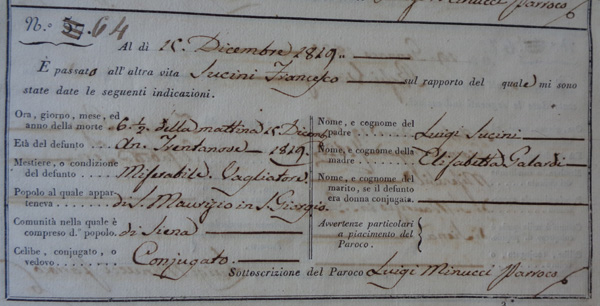 Minucci Parroco
N.° 64
Al dì 15. Dicembre 1819.
È passato all'altra vita Sucini Francesco sul rapporto del quale mi sono
state date le seguenti indicazioni.
Ora, giorno, mese, ed
anno della morte 6. ½ della mattina 15. Dicemb.
1819.
Età del defunto An. Trentanove
Mestiere, o condizione
del defunto Miserabile Vagliatore
Popolo al quale appar-
teneva di S. Maurizio in S. Giorgio
Comunità nella quale è
compreso d.° popolo di Siena
Celibe, conjugato, o
vedovo Conjugato
Nome, e cognome del
padre Luigi Sucini
Nome, e cognome della
madre Elisabetta Galardi
Nome, e cognome del
marito, se il defunto
era donna conjugata.
Avvertenze particolari
a piacimento del
Paroco.
Sottoscrizione del Paroco Luigi Minucci Parroco